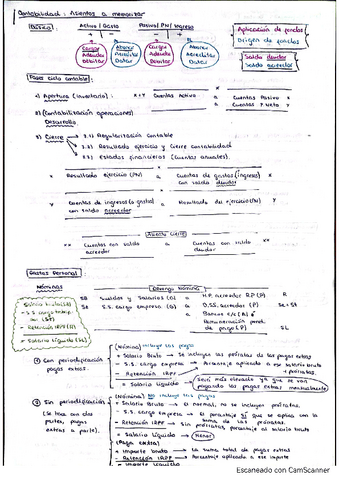 Contabilidad: Asientos a memorizar
Básico: Activo / Gasto Pasivo/ PN / Ingreso
Cargar Abonar Cargar Abonar
Adeudar Acreditar Adeudar Acreditar
Debitar Datar Debitar Datar
Aplicación de fondos
Origen de fondos
Saldo deudor
Saldo acreedor
Fases ciclo contable:
1) Apertura (inventario) x+y Cuentas Activo x
a Cuentas Pasivo x
a Cuentas P. Neto y
2) (Contabilización operaciones)
Desarrollo
3) Cierre
3.1) Regularización contable
3.2) Resultado ejercicio y Cierre contabilidad
3.3) Estados financieros (Cuentas anuales).
x Resultado ejercicio (PN) a Cuentas de gastos (ingresos) x
con saldo deudor
y Cuentas de ingresos (o gastos) a Resultado del ejercicio (PN) y
con saldo acreedor
Asiento cierre
xx Cuentas con saldo a Cuentas con saldo xx
acreedor deudor
Gastos Personal:
Nóminas
Devengo nómina
SB Sueldos y Salarios (G) a H.P. acreedor RF (P) R
SE S.S. cargo empresa (G) a O.SS. acreedor (P)
a Bancos c/c (A) ó
Remuneración pend.
de pago (P) SL
Salario bruto (SB)
- S.S. cargo trabaj.
- Retención IRPF (R)
= Salario líquido (SL)
① Con periodificación
pagas extras.
(Nómina) Incluye las pagas
+ Salario Bruto → Se incluyen las prorratas de las pagas extras
- S.S. cargo empresa → Porcentaje aplicado a ese salario bruto
+ prorratas.
- Retención IRPF
= Salario líquido → Será más elevado ya que se van
pagando las pagas extras mensualmente
② Sin periodificación
(Se hace con dos
partes, pagas
extras a parte).
(Nómina) No incluye las pagas
+ Salario Bruto → El normal, no se incluyen prorratas.
- S.S. cargo empresa → El porcentaje sí que se aplica con la
suma de las prorratas.
- Retención IRPF → Sin prorratas porcentaje al salario bruto
= Salario líquido → Menor
(Paga extra)
+ Importe bruto → La suma total de pagas extras
- Retención IRPF → Porcentaje aplicado a ese importe.
= Importe líquido
Escaneado con CamScanner